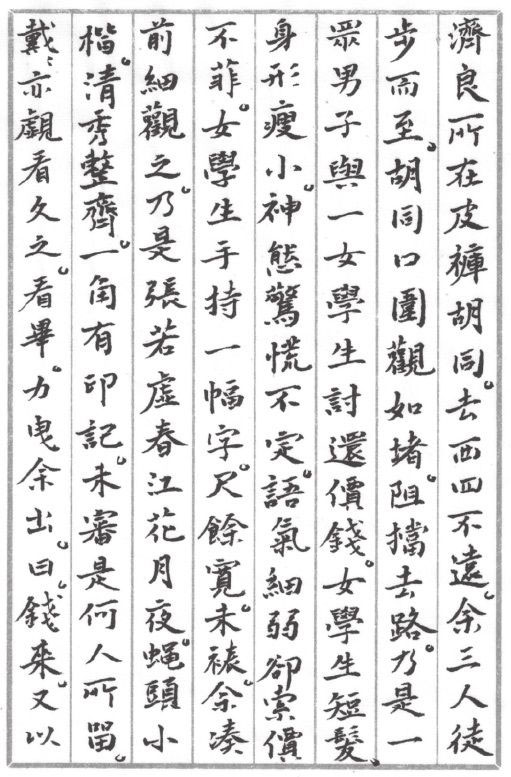 濟良所在皮褲胡同。去西四不遠。余三人徒
步而至。胡同口圍觀如堵。阻擋去路。乃是一
眾男子與一女學生討還價錢。女學生短髮。
身形瘦小。神態驚慌不定。語氣細弱卻索價
不菲。女學生手持一幅字。尺餘寬。未裱。余湊
前細觀之。乃是張若虛春江花月夜。蝇頭小
楷。清秀整齊。一角有印記。未審是何人所留。
戴、亦觀看久之。看畢。力曳余出。曰。錢來。又以